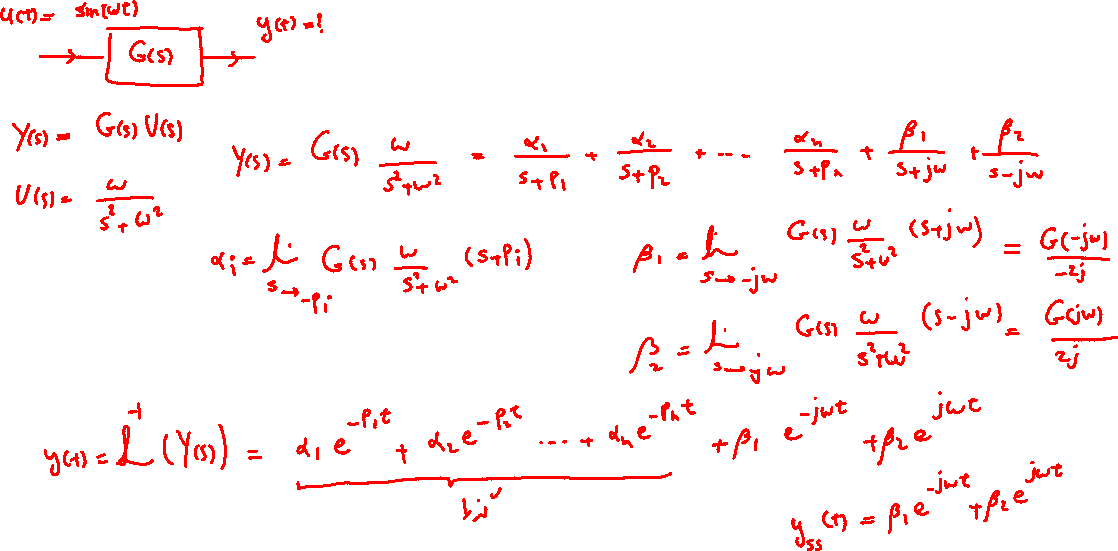 u(t) = sin(ωt)
y(t) = ?
G(s)
Y(s) = G(s) U(s)
Y(s) = G(s) ω/(s²+ω²) = α₁/(s+p₁) + α₂/(s+p₂) + ... αₙ/(s+pₙ) + β₁/(s+jω) + β₂/(s-jω)
U(s) = ω/(s²+ω²)
αᵢ = lim s→-pᵢ G(s) ω/(s²+ω²) (s+pᵢ)
β₁ = lim s→-jω G(s) ω/(s²+ω²) (s+jω) = G(-jω)/-2j
β₂ = lim s→jω G(s) ω/(s²+ω²) (s-jω) = G(jω)/2j
y(t) = L⁻¹(Y(s)) = α₁e^{-p₁t} + α₂e^{-p₂t} ... + αₙe^{-pₙt} + β₁ e^{-jωt} + β₂e^{jωt}
y_ss(t) = β₁e^{-jωt} + β₂e^{jωt}